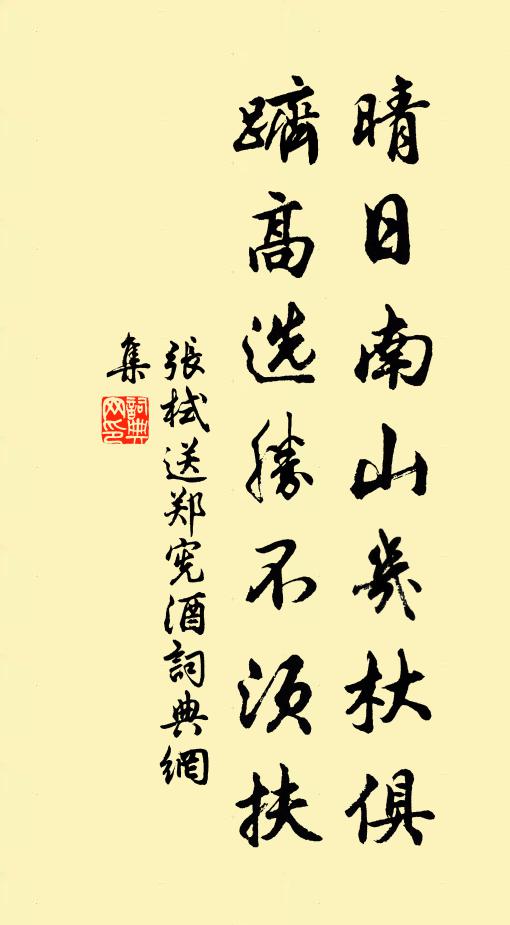 晴日南山几杖俱
躋高选勝不须扶
張栻送郑宪酒詞典網
集
詞典網印